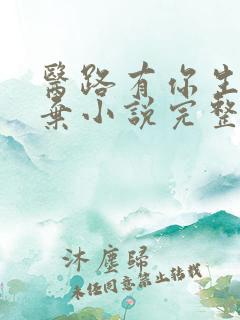 醫路有你生
棄小說完整
沐塵歸
未经同意禁止转载